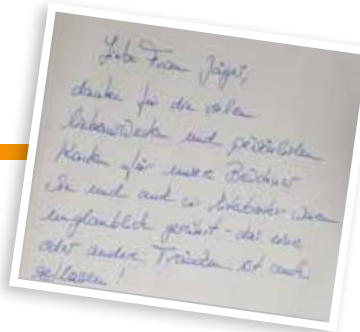 Liebe Frau Jäger,
danke für die vielen
liebenswerten und persönlichen
Karten für unsere Bewohner
Sie und auch wir Mitarbeiter waren
unglaublich gerührt - das eine
oder andere Tränchen ist auch
geflossen!